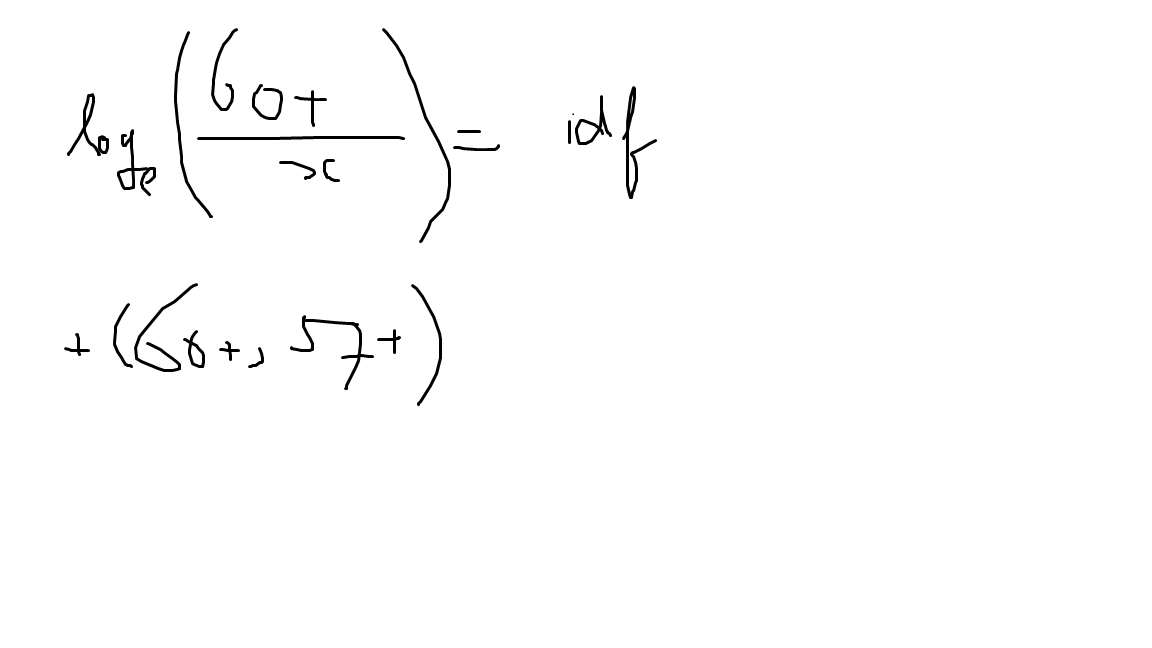 log_e (60+ / x) = idf
+ (60+, 57+)